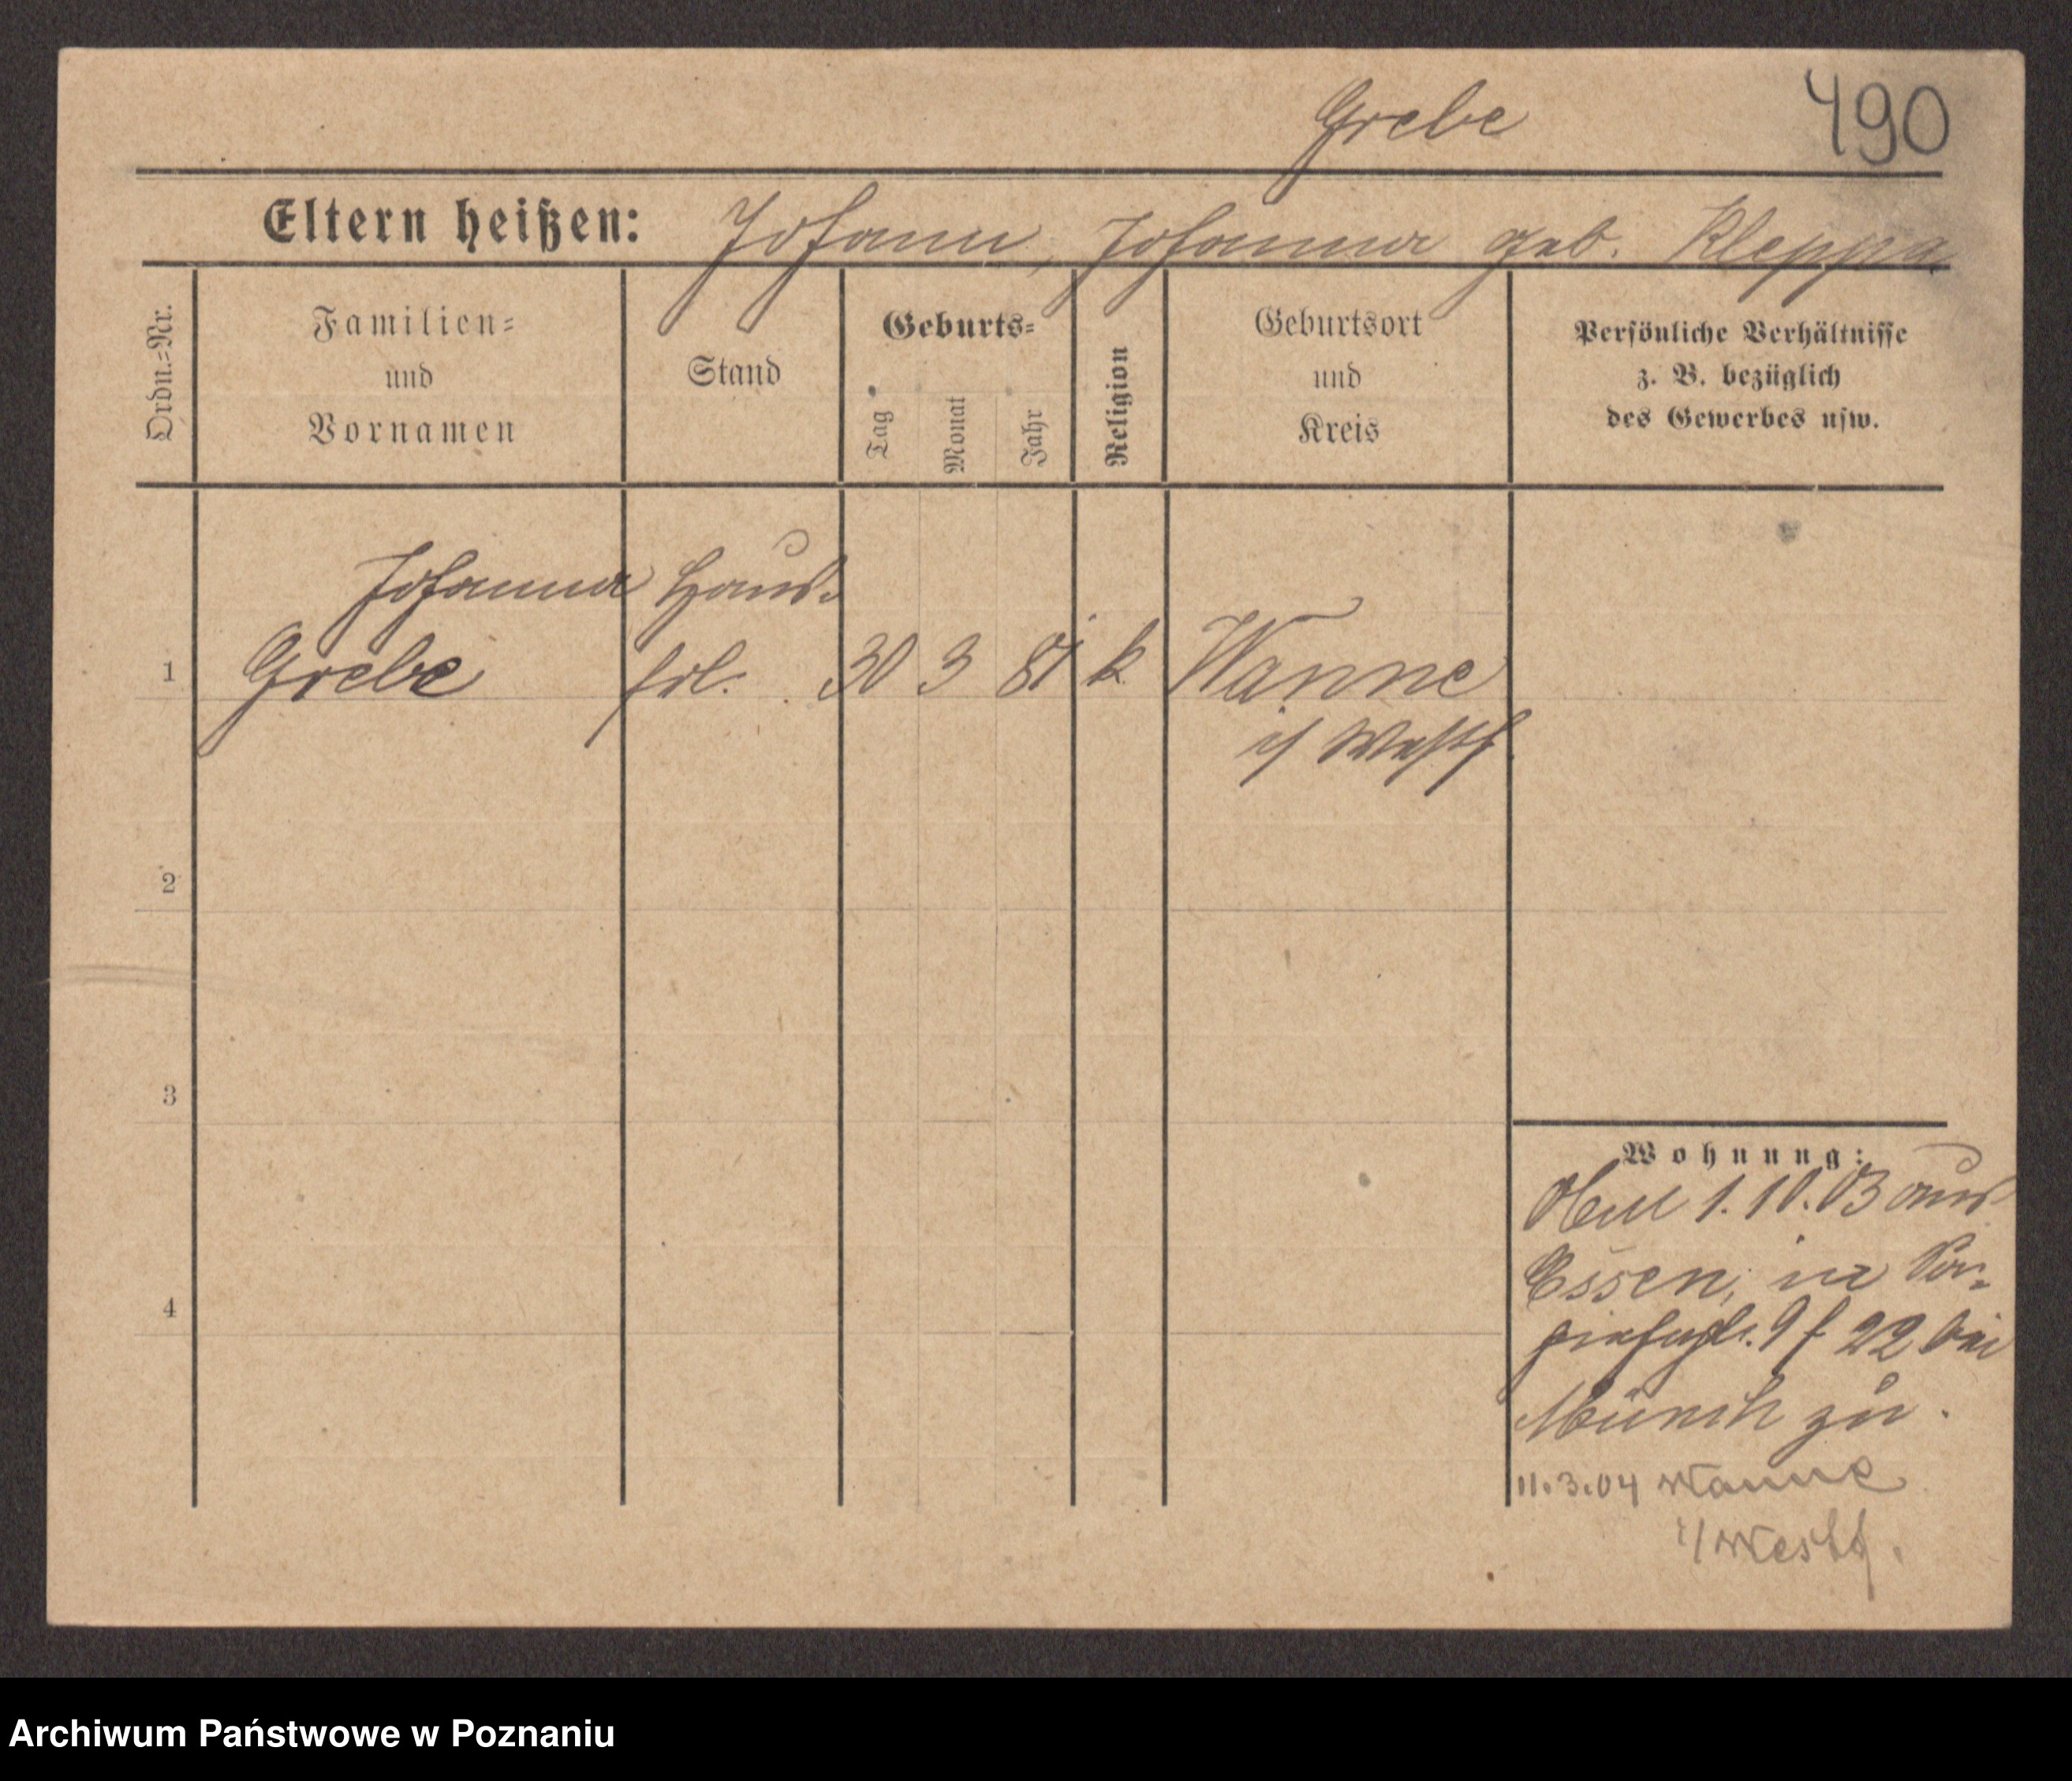 Grebe
490
Eltern heißen: Johann, Johanna geb. Kleppa
Ordn.=Nr.
Familien=
und
Vornamen
Stand
Geburts=
Tag
Monat
Jahr
Religion
Geburtsort
und
Kreis
Persönliche Verhältnisse
z. B. bezüglich
des Gewerbes usw.
Johanna Haus-
1 Grebe frl. 30 3 81 k Wanne
i/ Westf.
2
3
4
Wohnung:
1.10.03 aus
Essen, in
22 bei
Münch zu.
11.3.04 Wanne
i/Westf.
Archiwum Państwowe w Poznaniu